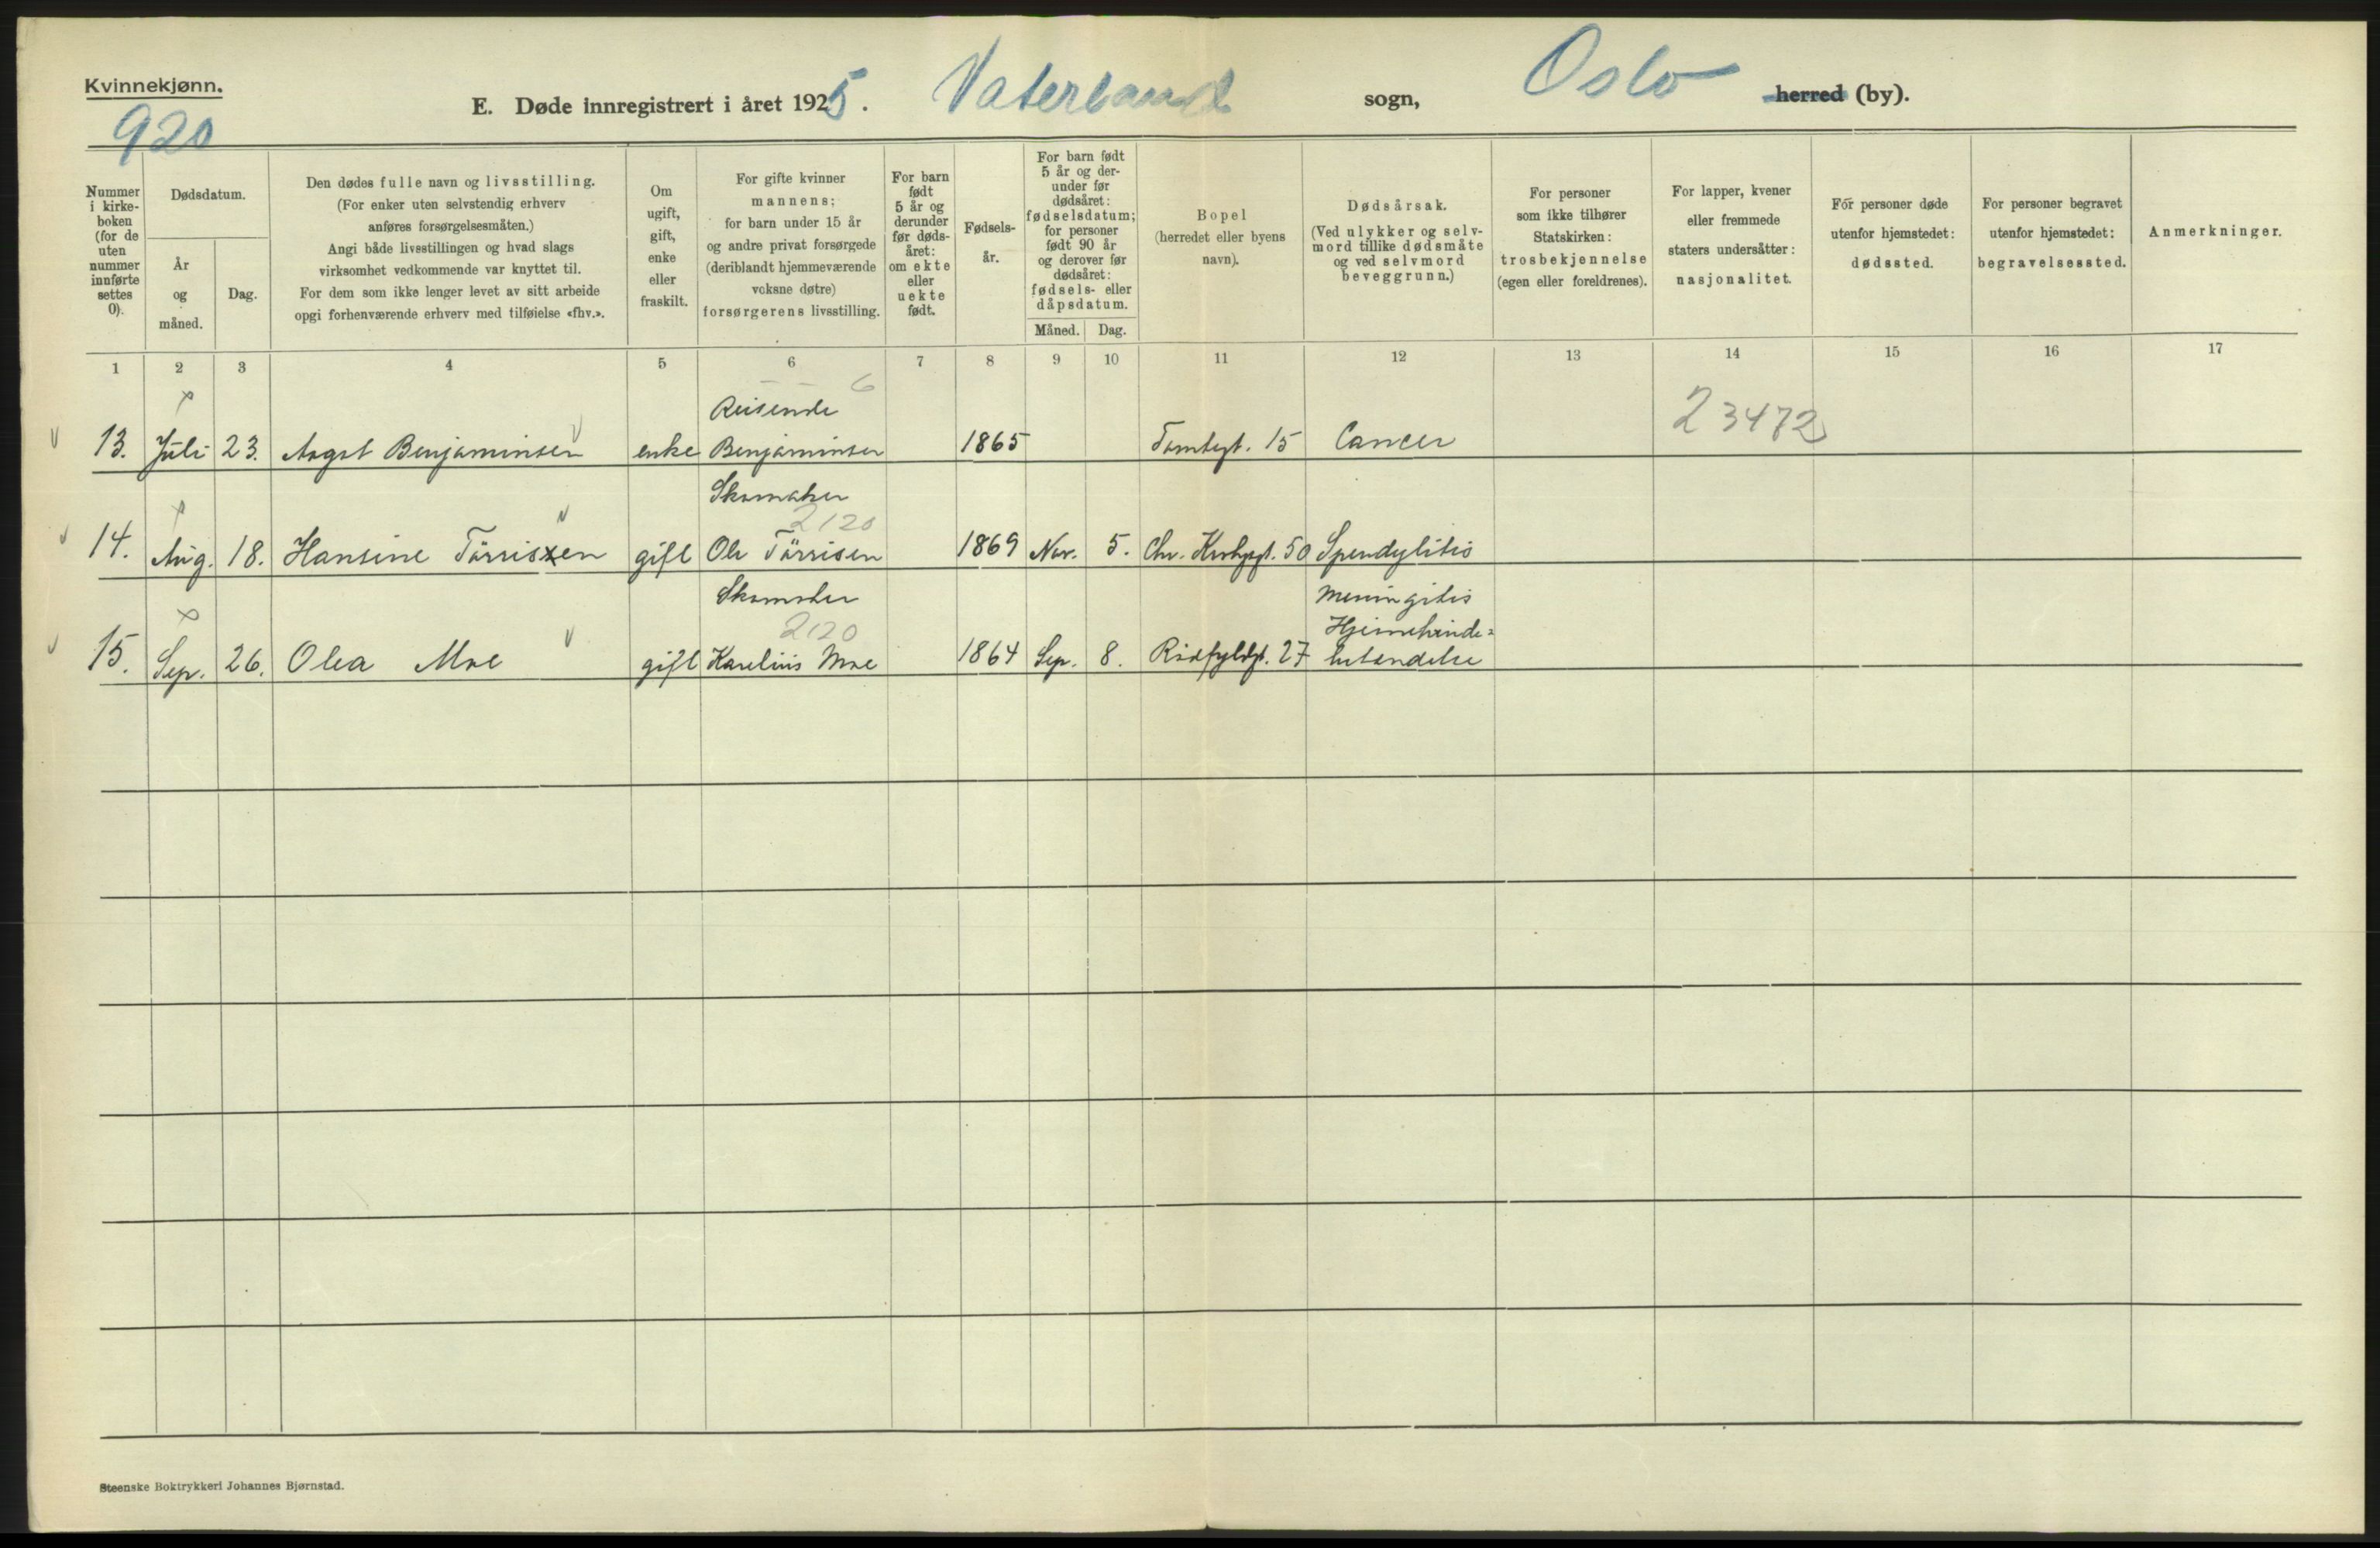 Kvinnekjønn.
920
E. Døde innregistrert i året 1925. Vaterland sogn, Oslo herred (by).
Nummer i kirke-boken (for de uten nummer innførte settes 0).
Dødsdatum.
År og måned.
Dag.
Den dødes fulle navn og livsstilling.
(For enker uten selvstendig erhverv
anføres forsørgelsesmåten.)
Angi både livsstillingen og hvad slags
virksomhet vedkommende var knyttet til.
For dem som ikke lenger levet av sitt arbeide
opgi forhenværende erhverv med tilføielse «fhv.».
Om ugift, gift, enke eller fraskilt.
For gifte kvinner
mannens;
for barn under 15 år
og andre privat forsørgede
(deriblandt hjemmeværende
voksne døtre)
forsørgerens livsstilling.
For barn født 5 år og derunder før døds-året: om ekte eller uekte født.
Fødsels-år.
For barn født
5 år og der-
under før
dødsåret:
fødselsdatum;
for personer
født 90 år
og derover før
dødsåret:
fødsels- eller
dåpsdatum.
Måned. Dag.
Bopel
(herredet eller byens
navn).
Dødsårsak.
(Ved ulykker og selv-
mord tillike dødsmåte
og ved selvmord
beveggrunn.)
For personer
som ikke tilhører
Statskirken:
trosbekjennelse
(egen eller foreldrenes).
For lapper, kvener
eller fremmede
staters undersåtter:
nasjonalitet.
For personer døde
utenfor hjemstedet:
dødssted.
For personer begravet
utenfor hjemstedet:
begravelsessted.
Anmerkninger.
1 2 3 4 5 6 7 8 9 10 11 12 13 14 15 16 17
6
Reisende
23472
13. Juli 23. Benjaminsen enke Benjaminsen 1865 Tomtegt. 15 Cancer
Skomaker
2120
14. Aug. 18. Hansine Törrisen gift Ole Törrisen 1869 Nov. 5. Chr. Krohgsgt. 50 Spondylitis
Skomaker
Meningitis
2120
Hjernehinde=
15. Sep. 26. Olea Moe gift Karelius Moe 1864 Sep. 8. 27 betændelse
Steenske Boktrykkeri Johannes Bjørnstad.